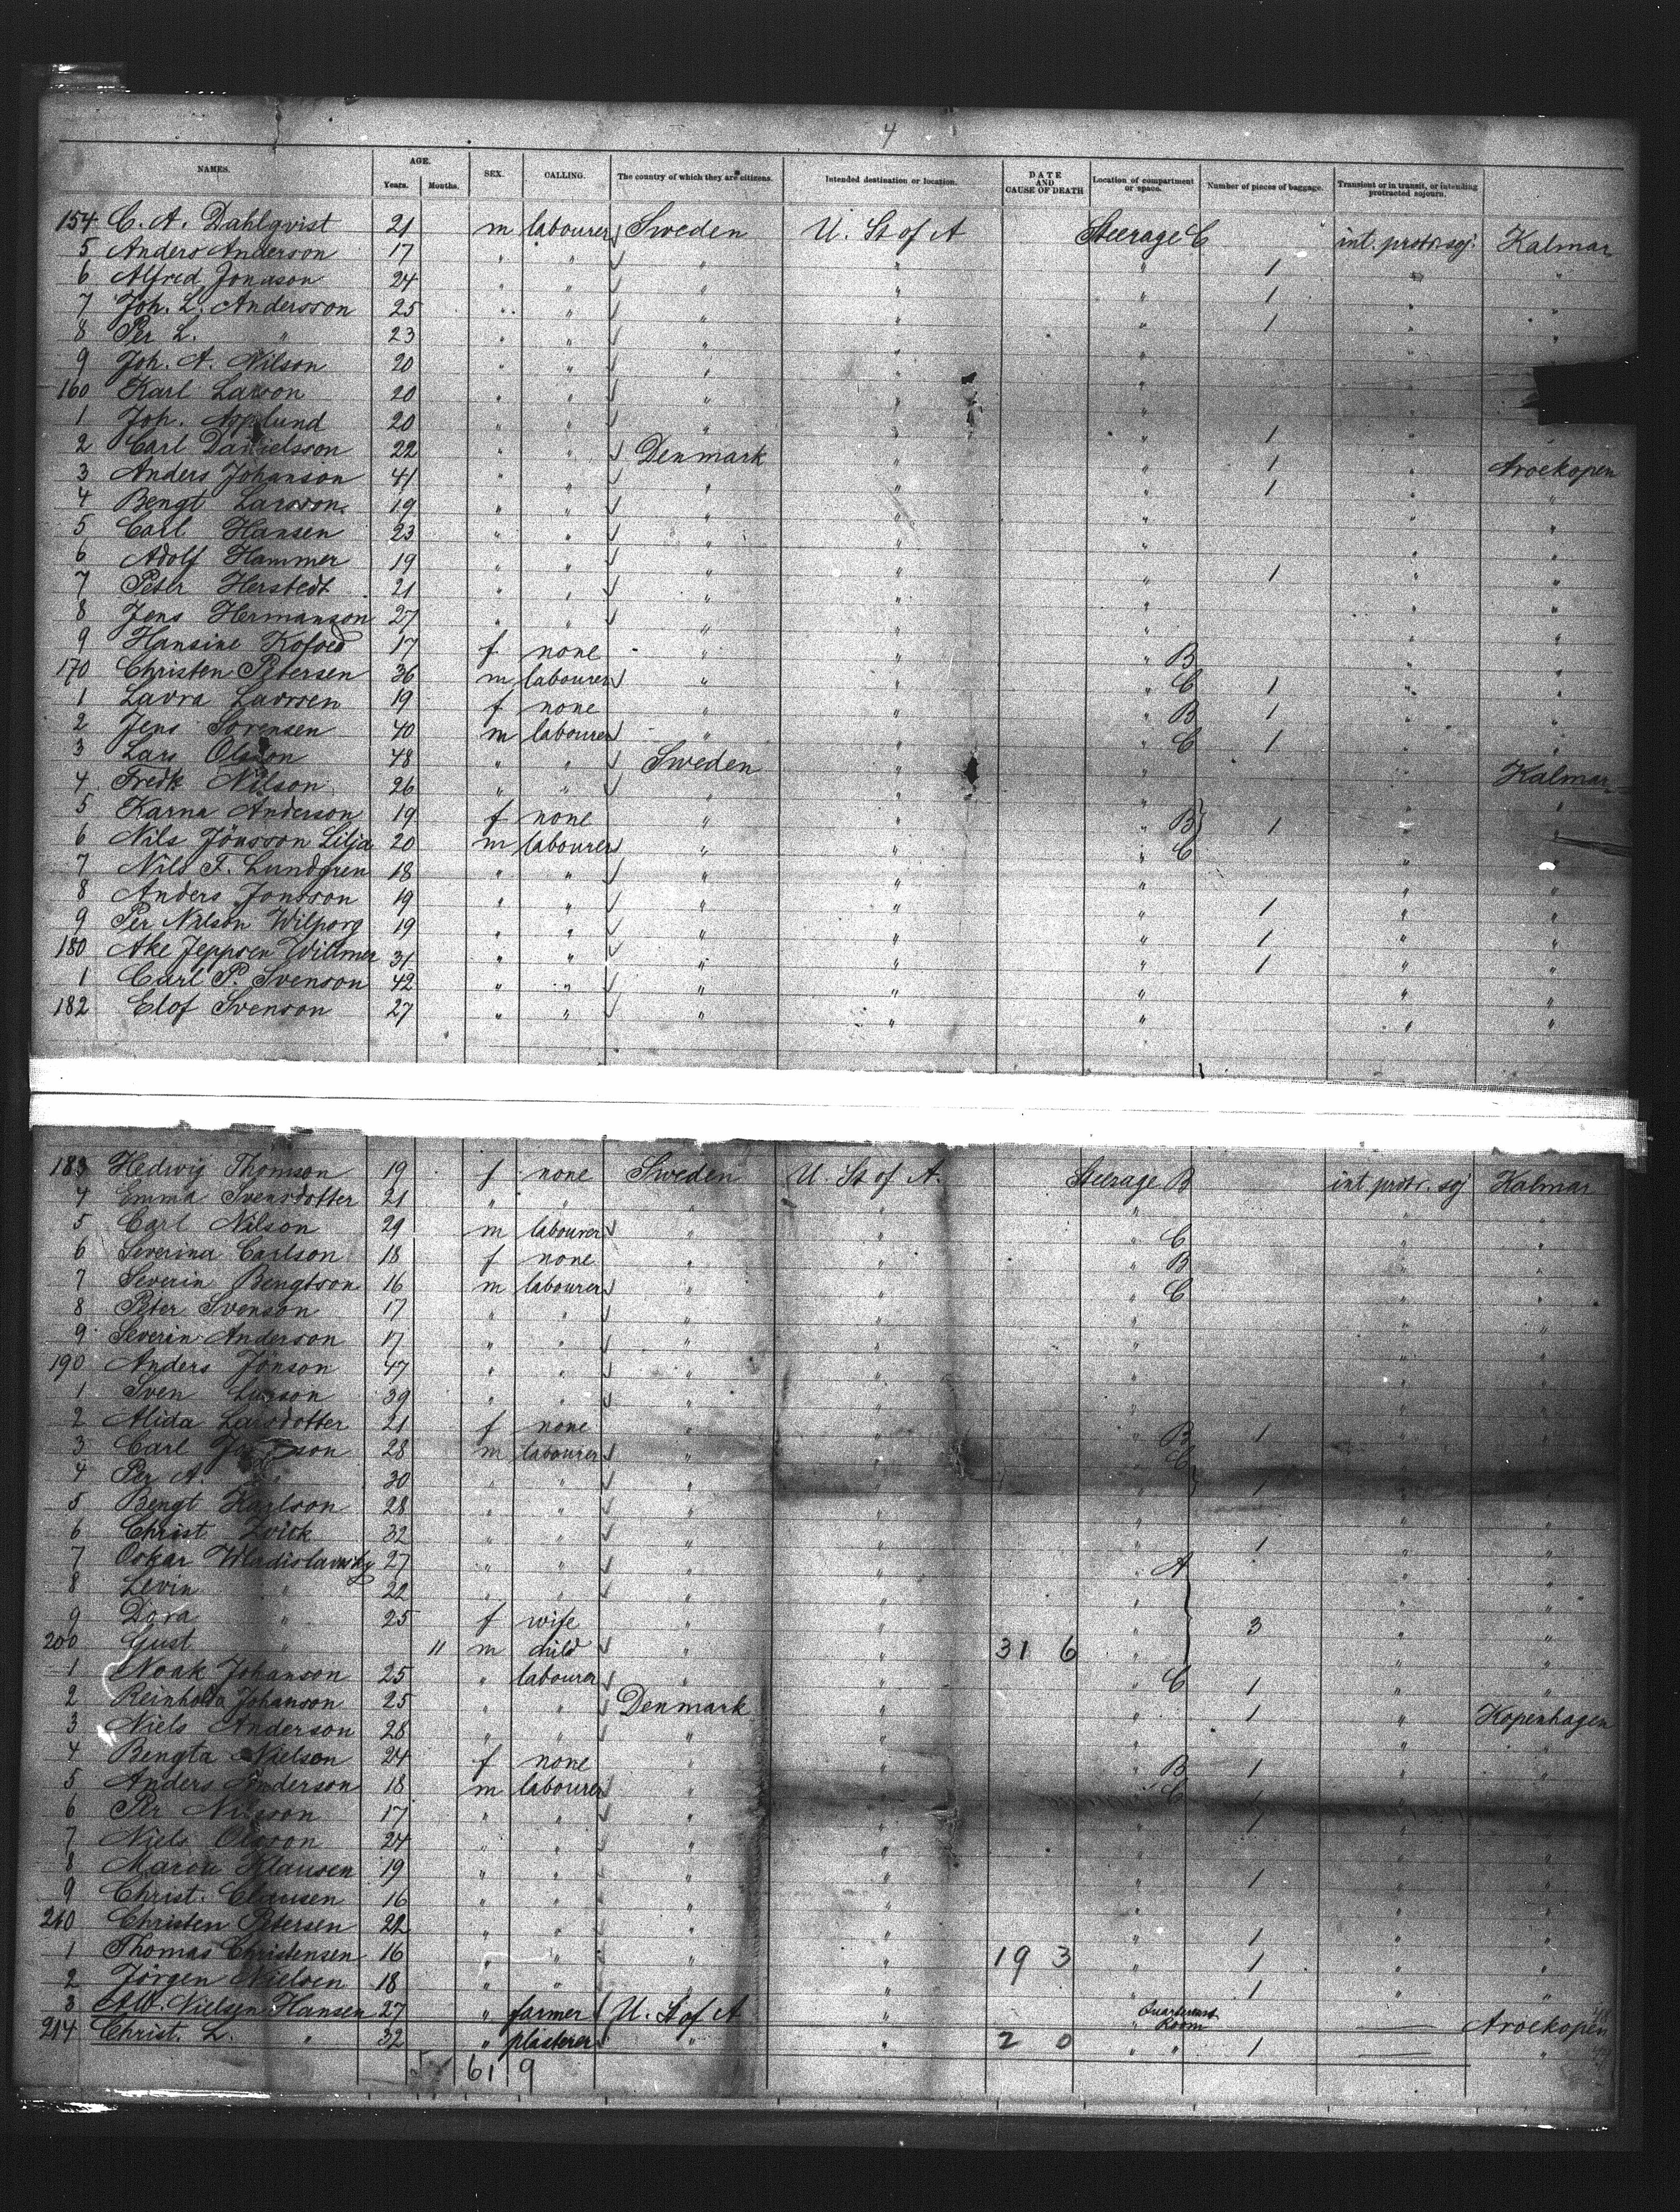 4
NAMES. AGE. Years. Months. SEX. CALLING. The country of which they are citizens. Intended destination or location. DATE AND CAUSE OF DEATH Location of compartment or space. Number of pieces of baggage. Transient or in transit, or intending protracted sojourn.
154 C. A. Dahlqvist 21 m labourer Sweden U. St of A Steerage C int. protr. soj. Kalmar
5 Anders Anderson 17 " " " " " 1 " "
6 Alfred Jonason 24 " " " " " 1 " "
7 Joh. L. Andersson 25 " " " " " 1 " "
8 Per L. " 23 " " " " " " "
9 Joh. A. Nilson 20 " " " " " " "
160 Karl Larson 20 " " " " " " "
1 Joh. Applund 20 " " " " " 1 " "
2 Carl Danielsson 22 " " Denmark " " 1 " Aroekopen
3 Anders Johanson 41 " " " " " 1 " "
4 Bengt Larsson 19 " " " " " " "
5 Carl Hansen 23 " " " " " " "
6 Adolf Hammer 19 " " " " " 1 " "
7 Peter Herstedt 21 " " " " " " "
8 Jens Hermanson 27 " " " " " " "
9 Hansine Kofoed 17 f none " " " B " "
170 Christen Petersen 36 m labourer " " " C 1 " "
1 Laura Laursen 19 f none " " " B 1 " "
2 Jens Sörensen 40 m labourer " " " C 1 " "
3 Lars Olsson 48 " " Sweden " " " Kalmar
4 Fredk Nilson 26 " " " " " " "
5 Karna Anderson 19 f none " " " B 1 " "
6 Nils Jönsson Lilja 20 m labourer " " " C " "
7 Nils F. Lundgren 18 " " " " " " "
8 Anders Jonsson 19 " " " " " 1 " "
9 Per Nilson Wilporg 19 " " " " " 1 " "
180 Ake Jeppsen Willmer 31 " " " " " 1 " "
1 Carl P. Svenson 42 " " " " " " "
182 Elof Svenson 27 " " " " " " "
183 Hedwig Thomson 19 f none Sweden U. St of A. Steerage B int protr. soj Kalmar
4 Emma Svensdotter 21 " " " " " " "
5 Carl Nilson 29 m labourer " " " C " "
6 Severina Carlson 18 f none " " " B " "
7 Severin Bengtson 16 m labourer " " " C " "
8 Peter Svenson 17 " " " " " " "
9 Severin Anderson 17 " " " " " " "
190 Anders Jönson 47 " " " " " " "
1 Sven Larson 39 " " " " " " "
2 Alida Larsdotter 21 f none " " " B 1 " "
3 Carl 28 m labourer " " " C " "
4 Per A. " 30 " " " " " 1 " "
5 Bengt Karlson 28 " " " " " " "
6 Christ Zwick 32 " " " " " 1 " "
7 Oskar Wladislawsky 27 " " " " " A " "
8 Levin " 22 " " " " " " "
9 Dora " 25 f wife " " " 3 " "
200 Gust " 11 m child " " 31 6 " " "
1 Noak Johanson 25 " labourer " " " C 1 " "
2 Reinholda Johanson 25 " " Denmark " " 1 " Kopenhagen
3 Niels Anderson 28 " " " " " " "
4 Bengta Nielson 24 f none " " " B 1 " "
5 Anders Anderson 18 m labourer " " " C 1 " "
6 Per Nilsson 17 " " " " " 1 " "
7 Niels Olsson 24 " " " " " " "
8 Klausen 19 " " " " " 1 " "
9 Christ. Clausen 16 " " " " " " "
210 Christen Petersen 22 " " " " " 1 " "
1 Thomas Christensen 16 " " " " 19 3 " 1 " "
2 Jörgen Nielsen 18 " " " " " 1 " "
3 Nielsen Hansen 27 " farmer U. St of A " " Room Aroekopen
214 Christ. L. " 32 " plasterer " " 2 0 " " 1 "
61 9